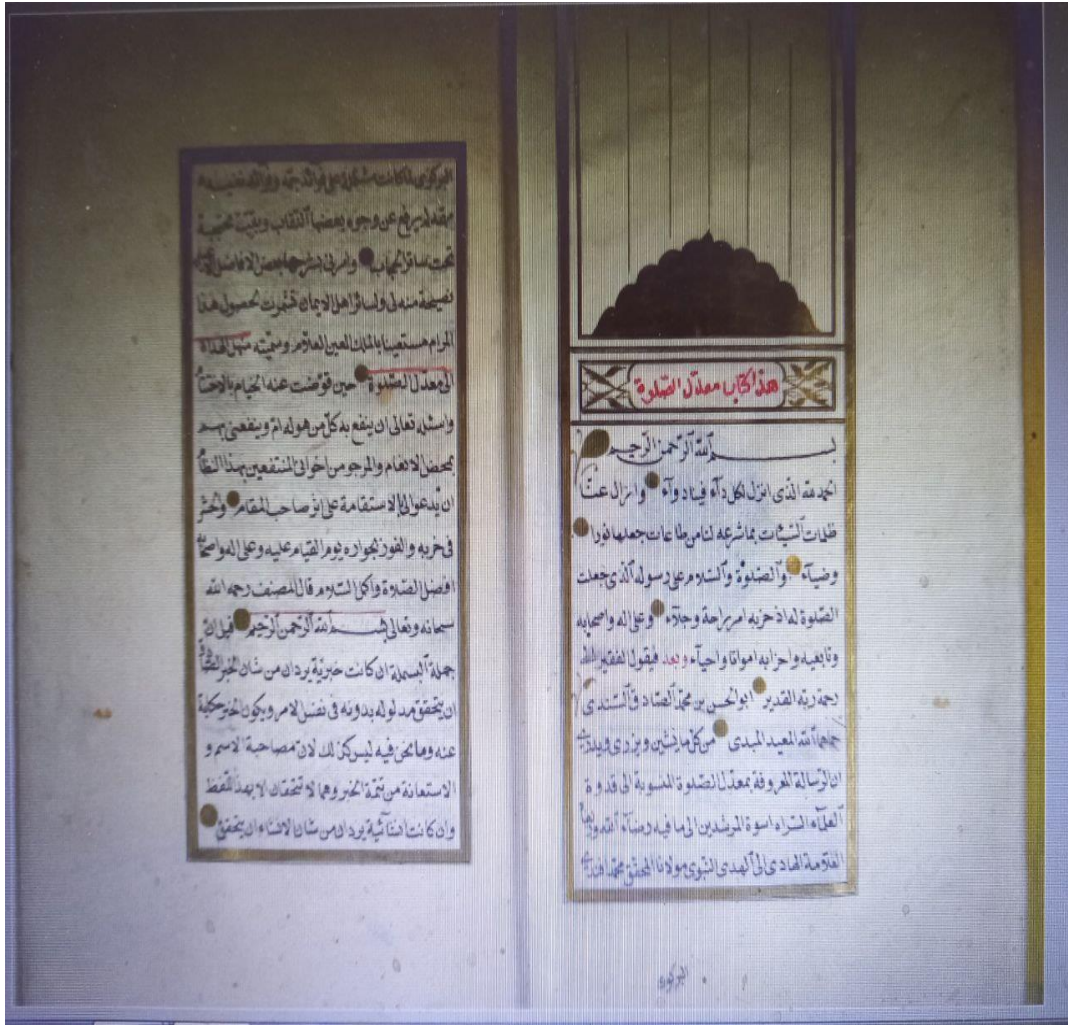 هذا كتاب معدل الصلوة
بسم الله الرحمن الرحيم
الحمد لله الذى انزل لكل دآء فينا دوآء وازال عنا
ظلمات السيئات بما شرعه لنا من طاعات جعلها نورا
وضيآء والصلوة والسلام على رسوله الذى جعلت
الصلوة له اذ حزبه امر راحة وجلآء وعلى اله واصحابه
وتابعيه واحزابه امواتا واحيآء وبعد فيقول الفقير الى
رحمة ربه القدير ابوالحسن بن محمد الصادق السندى
حماهما الله المعيد المبدى من كل ما يشين ويزرى ويردى
ان الرسالة المعروفة بمعدل الصلوة المنسوبة الى قدوة
العلمآء السراه اسوة المرشدين الى ما فيه رضآء الله
العلامة الهادى الى الهدى النبوى مولانا المحقق محمد افندى
البركوى
البركوى لما كانت مشتملة على
مقدله يرفع عن وجوه بعضها النقاب وبقيت محتجبة
تحت ساتر الحجاب وامرنى بشرحها بعض الافاضل
نصيحة منه لى ولسائر اهل الايمان فشمرت لحصول هذا
المرام مستعينا بالملك المعين العلام وسميته منهل الهداة
الى معدل الصلوة حين قوضت عنه الخيام بالاختتام
واسئله تعالى ان ينفع به كل من هوله ام وينفعنى بهم
بمحض الانعام والمرجو من اخوانى المنتفعين بهذا النظام
ان يدعوا لى بالاستقامة على اثر صاحب المقام والحشر
فى حزبه والفوز بجواره يوم القيام عليه وعلى اله واصحابه
افضل الصلاة واكمل السلام قال المصنف رحمه الله
سبحانه وتعالى بسم الله الرحمن الرحيم قيل ان
جملة البسملة ان كانت خبرية يرد ان من شان الخبر الصادق
ان يتحقق مدلوله بدونه فى نفس الامر ويكون الخبر حكاية
عنه وما نحن فيه ليس كذلك لان مصاحبة الاسم و
الاستعانة من تتمة الخبر وهما لا تتحققان الا بهذا اللفظ
وان كانت انشائية يرد ان من شان الانشاء ان يتحقق